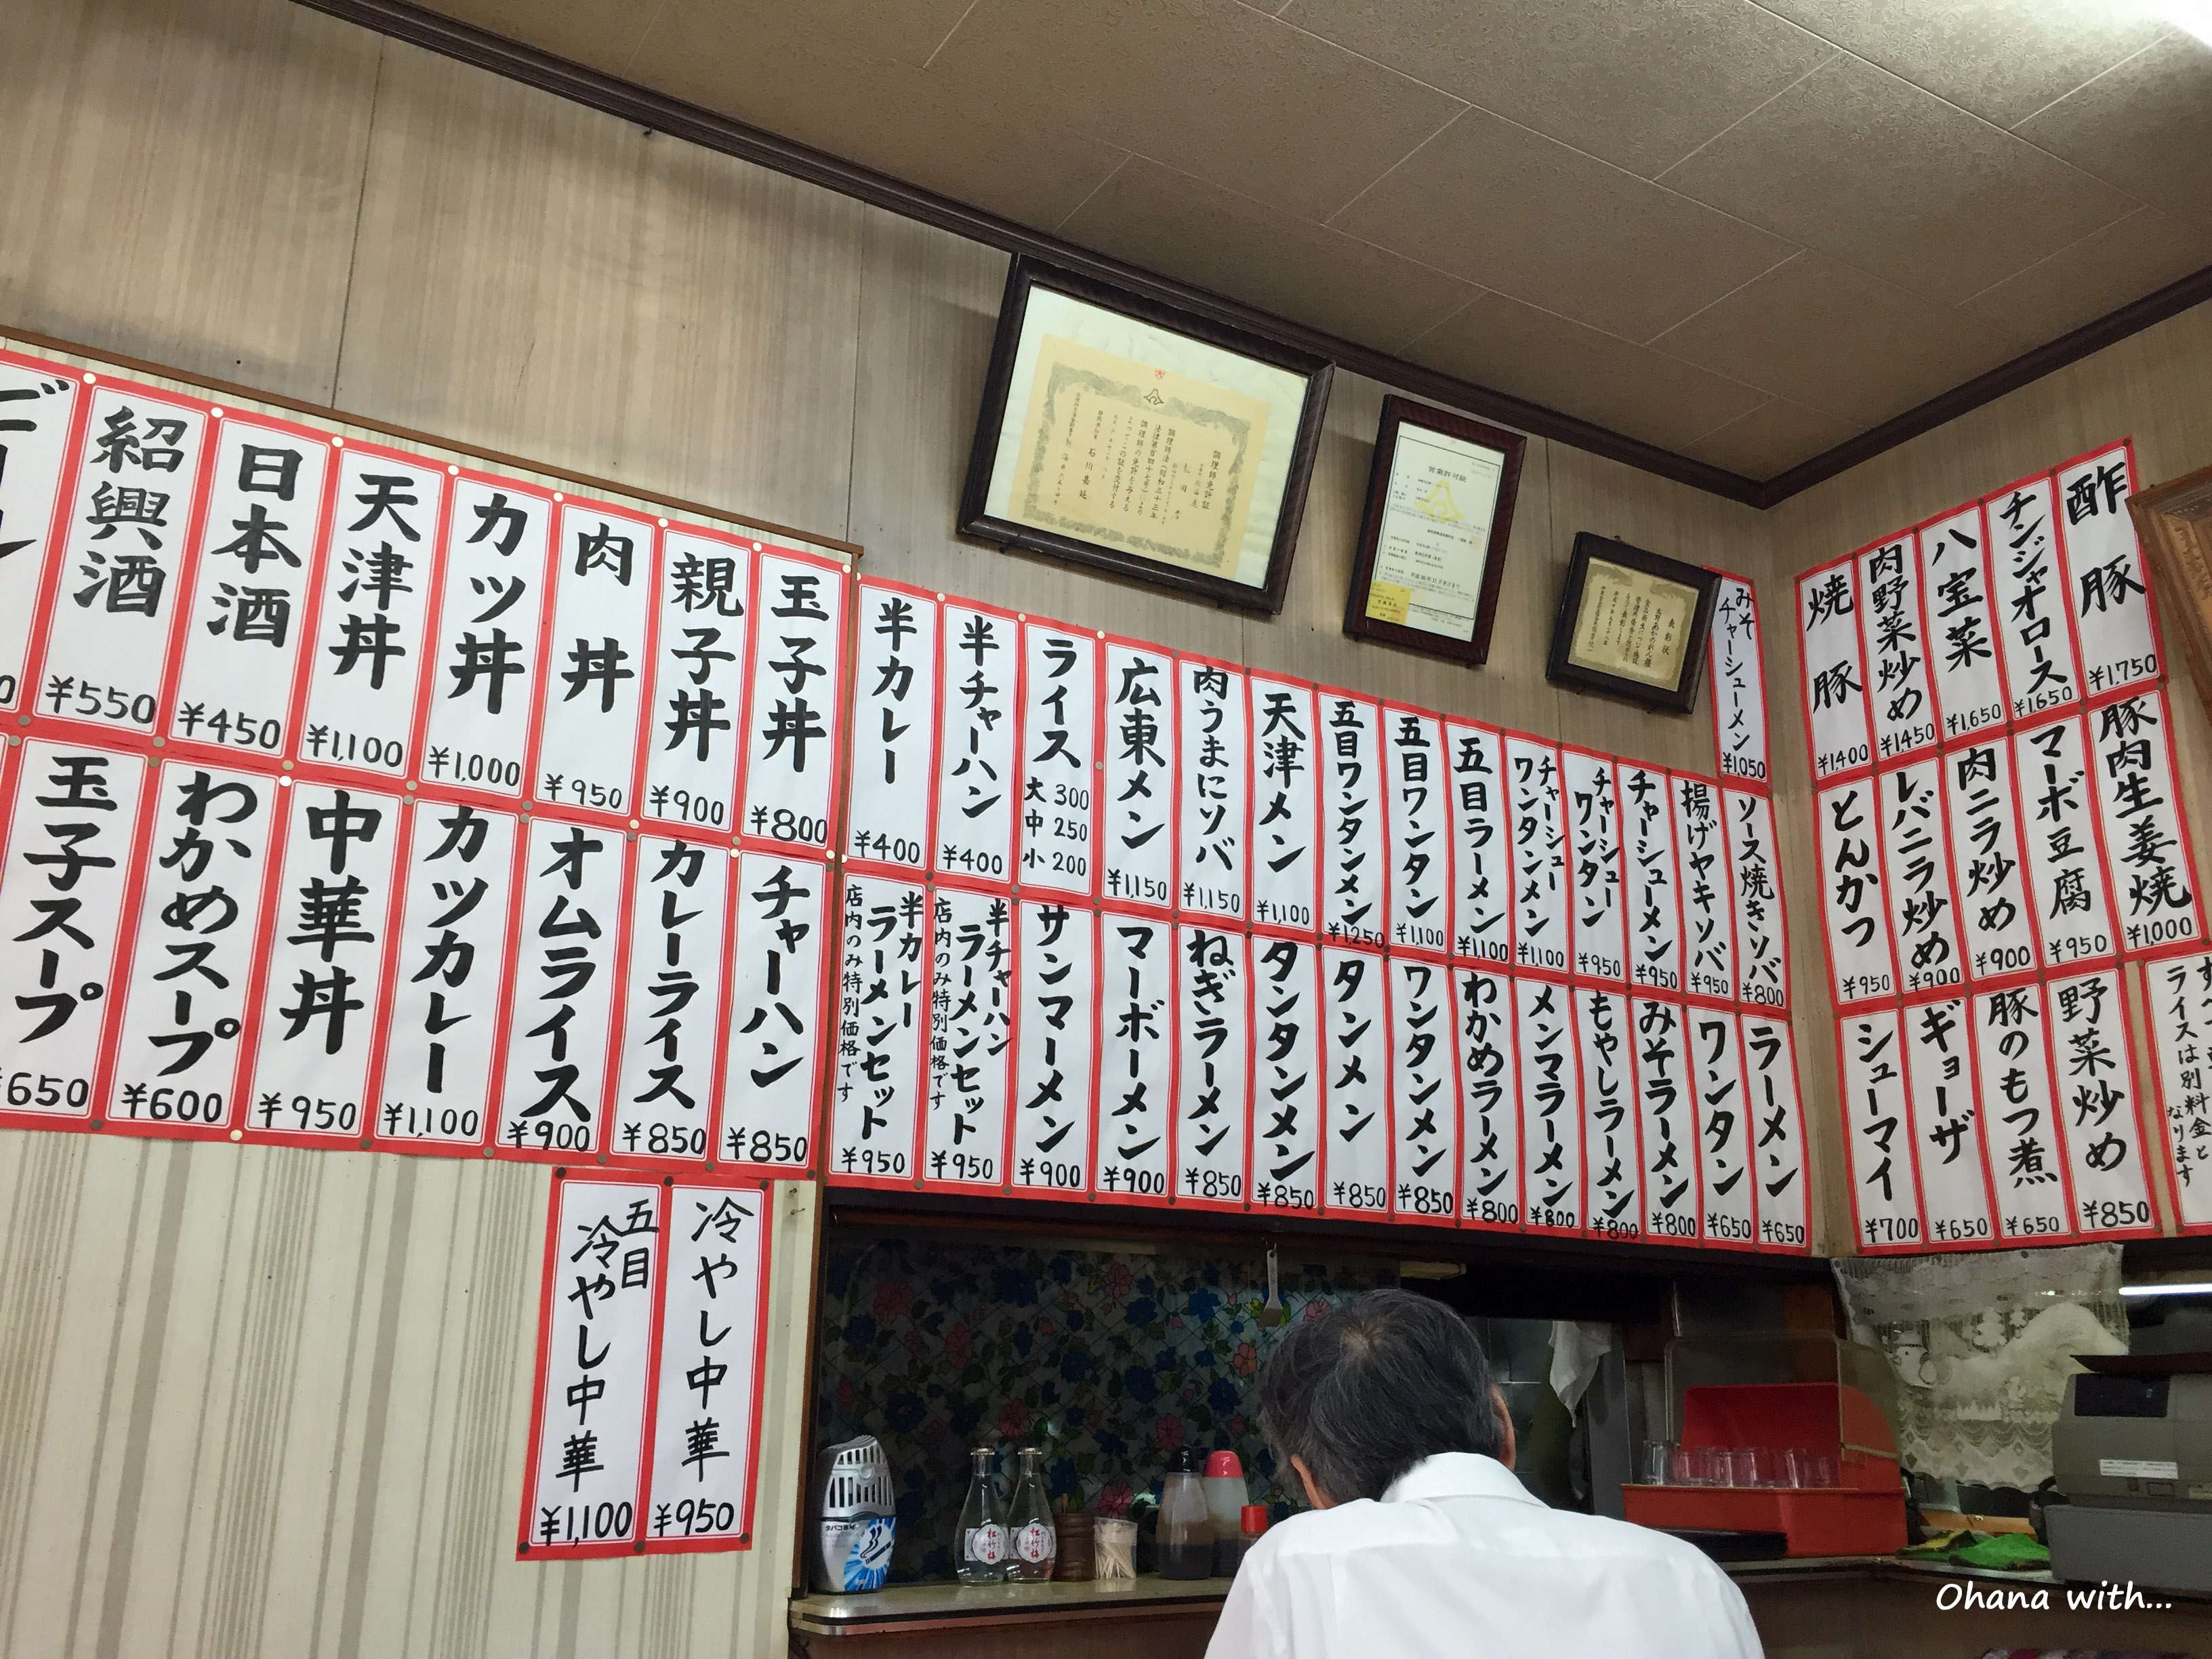 紹興酒 ¥550
日本酒 ¥450
天津丼 ¥1,100
カツ丼 ¥1,000
肉丼 ¥950
親子丼 ¥900
玉子丼 ¥800
玉子スープ ¥650
わかめスープ ¥600
中華丼 ¥950
カツカレー ¥1,100
オムライス ¥900
カレーライス ¥850
チャーハン ¥850
五目冷やし中華 ¥1,100
冷やし中華 ¥950
半カレー ¥400
半チャーハン ¥400
ライス 大300 中250 小200
広東メン ¥1,150
肉うまにソバ ¥1,150
天津メン ¥1,100
五目ワンタンメン ¥1,250
五目ワンタン ¥1,100
五目ラーメン ¥1,100
チャーシューワンタンメン ¥1,100
チャーシューワンタン ¥950
チャーシューメン ¥950
揚げヤキソバ ¥950
ソース焼きソバ ¥800
みそチャーシューメン ¥1,050
半カレーラーメンセット 店内のみ特別価格です ¥950
半チャーハンラーメンセット 店内のみ特別価格です ¥950
サンマーメン ¥900
マーボーメン ¥900
ねぎラーメン ¥850
タンタンメン ¥850
タンメン ¥850
ワンタンメン ¥850
わかめラーメン ¥800
メンマラーメン ¥800
もやしラーメン ¥800
みそラーメン ¥800
ワンタン ¥650
ラーメン ¥650
焼豚 ¥1,400
肉野菜炒め ¥1450
八宝菜 ¥1,650
チンジャオロース ¥1,650
酢豚 ¥1,750
とんかつ ¥950
レバニラ炒め ¥900
肉ニラ炒め ¥900
マーボ豆腐 ¥950
豚肉生姜焼 ¥1,000
シューマイ ¥700
ギョーザ ¥650
豚のもつ煮 ¥650
野菜炒め ¥850
ライスは別料金となります
調理師免許証
営業許可証
表彰状
松竹梅
松竹梅
Ohana with...